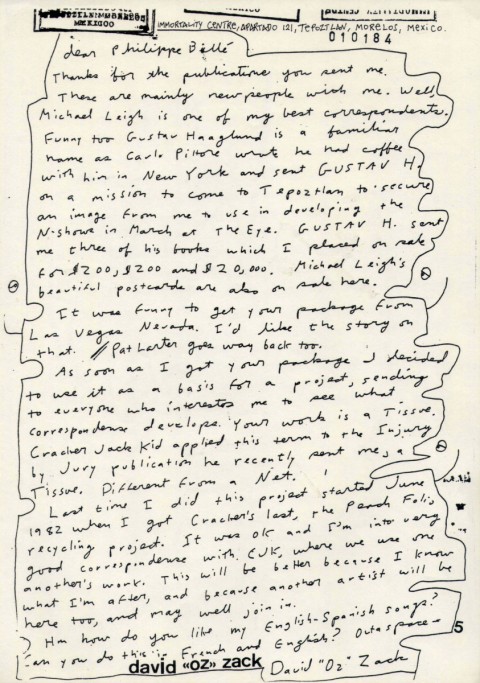 TEPOZTLAN: MORELOS
MEXICO
IMMORTALITY CENTRE, APARTADO 121, TEPOZTLAN, MORELOS, MEXICO.
010184
dear Philippe Billé
Thanks for the publications you sent me.
These are mainly new people with me. Well,
Michael Leigh is one of my best correspondents.
Funny too Gustav Haaglund is a familiar
name as Carlo Pittore wrote he had coffee
with him in New York and sent GUSTAV H.
on a mission to come to Tepoztlan to secure
an image from me to use in developing the
N-shows in March at The Eye. GUSTAV H. sent
me three of his books which I placed on sale
for $200, $200 and $20,000. Michael Leigh's
beautiful postcards are also on sale here.
It was funny to get your package from
Las Vegas Nevada. I'd like the story on
that. // Pat Larter goes way back too.
As soon as I got your package I decided
to use it as a basis for a project, sending
to everyone who interests me to see what
correspondense develops. Your work is a Tissue.
Cracker Jack Kid applied this term to the Injury
by Jury publication he recently sent me, a
Tissue. Different from a Net.
Last time I did this project started June
1982 when I got Cracker's last, the Peach Folio
recycling project. It was ok and I'm into very
good correspondense with CJK, where we use one
another's work. This will be better because I know
what I'm after, and because another artist will be
here too, and may well join in.
Hm how do you like my English-Spanish song?
Can you do this in French and English? Outaspace-
5
david «oz» zack
David "Oz" Zack